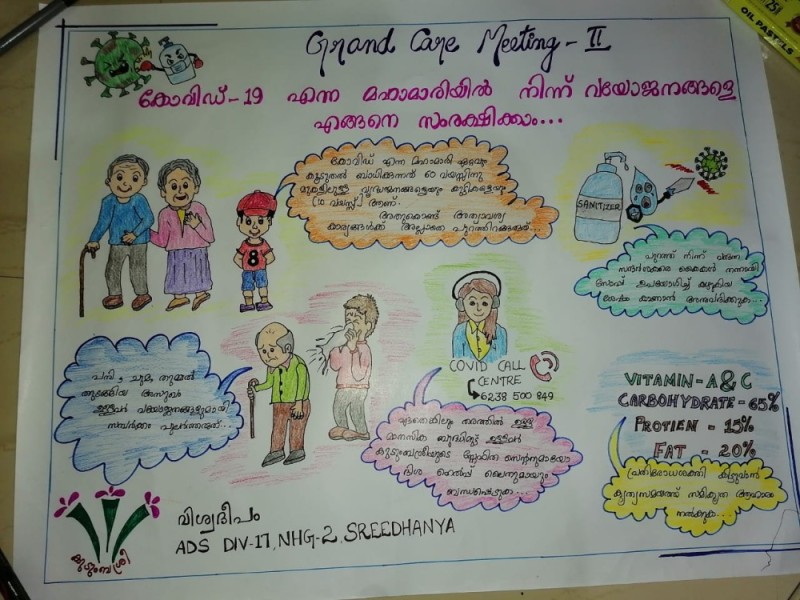 Grand Care Meeting - II
കോവിഡ് - 19 എന്ന മഹാമാരിയിൽ നിന്ന് വയോജനങ്ങളെ
എങ്ങനെ സംരക്ഷിക്കാം...
കോവിഡ് എന്ന മഹാമാരി ഏറ്റവും
കൂടുതൽ ബാധിക്കുന്നത് 60 വയസ്സിനു
മുകളിലുള്ള വൃദ്ധജനങ്ങളെയും കുട്ടികളെയും
(10 വയസ്സ്) ആണ്.
അതുകൊണ്ട് അത്യാവശ്യ
കാര്യങ്ങൾക്ക് അല്ലാതെ പുറത്തിറങ്ങരുത്...
8
SANITIZER
പുറത്ത് നിന്ന് വരുന്ന
സന്ദർശകരെ കൈകൾ നന്നായി
സോപ്പ് ഉപയോഗിച്ച് കഴുകിയ
ശേഷം കാണാൻ അനുവദിക്കുക...
പനി, ചുമ, തുമ്മൽ
തുടങ്ങിയ അസുഖം
ഉള്ളവർ വയോജനങ്ങളുമായി
സമ്പർക്കം പുലർത്തരുത്...
COVID CALL
CENTRE
6238 500 849
ഏതെങ്കിലും തരത്തിൽ ഉള്ള
മാനസിക ബുദ്ധിമുട്ട് ഉള്ളവർ
കുടുംബശ്രീയുടെ സ്നേഹിത സെന്ററുമായോ
ദിശ ഹെൽപ്പ് ലൈനുമായും
ബന്ധപ്പെടുക...
VITAMIN - A & C
CARBOHYDRATE - 65%
PROTIEN - 15%
FAT - 20%
പ്രതിരോധശക്തി കൂട്ടുവാൻ
കൃത്യസമയത്ത് സമീകൃത ആഹാരം
നൽകുക...
കുടുംബശ്രീ
വിശ്വദീപം
ADS DIV-17, NHG-2, SREEDHANYA
OIL PASTELS